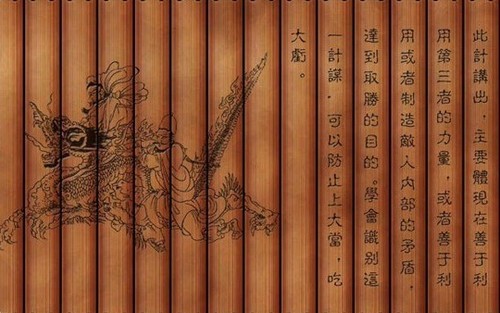 此計講出，主要體現在善于利
用第三者的力量，或者善于利
用或者制造敵人內部的矛盾，
達到取勝的目的。學會識别這
一計謀，可以防止上大當，吃
大虧。